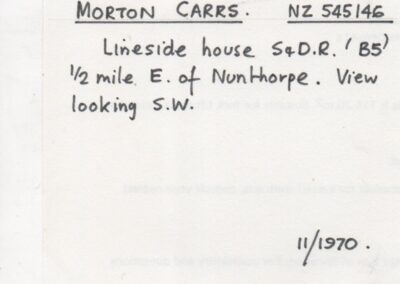 MORTON CARRS. NZ 545146
Lineside house S&D.R. 'B5'
1/2 mile E. of Nunthorpe. View
looking S.W.
11/1970.